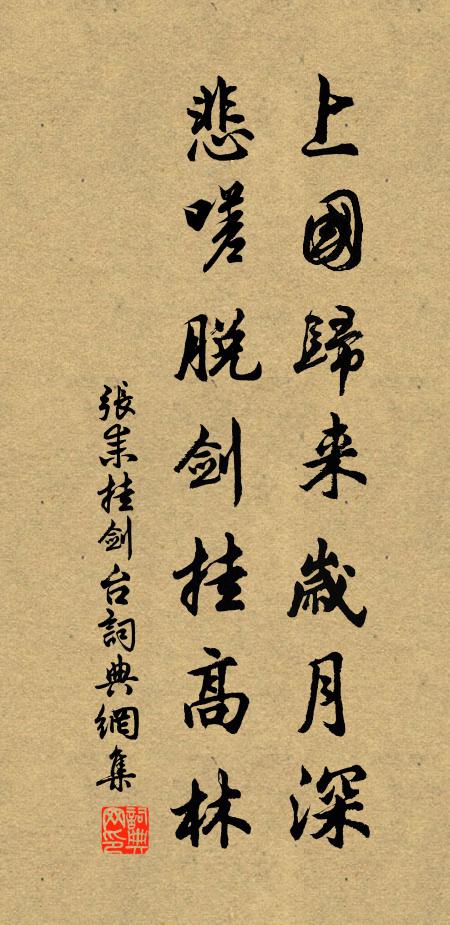 上國歸来歲月深
悲嗟脱剑挂高林
張耒挂剑台詞典網集
詞典网印